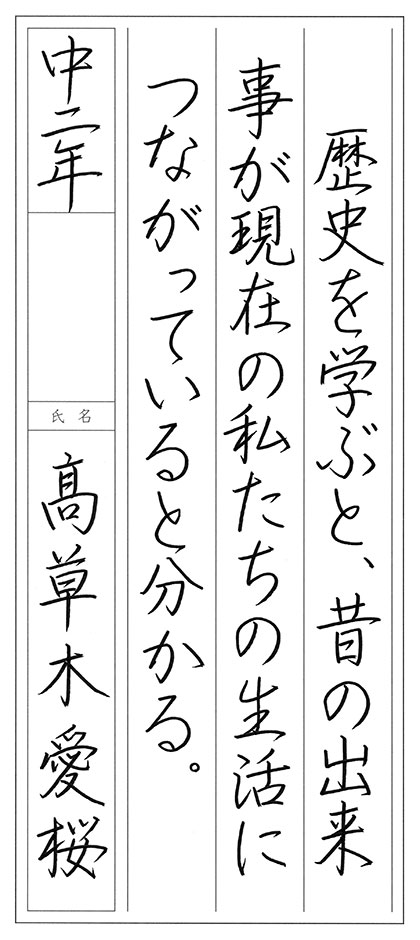 歴史を学ぶと、昔の出来
事が現在の私たちの生活に
つながっていると分かる。
中二年
氏名
髙草木愛桜